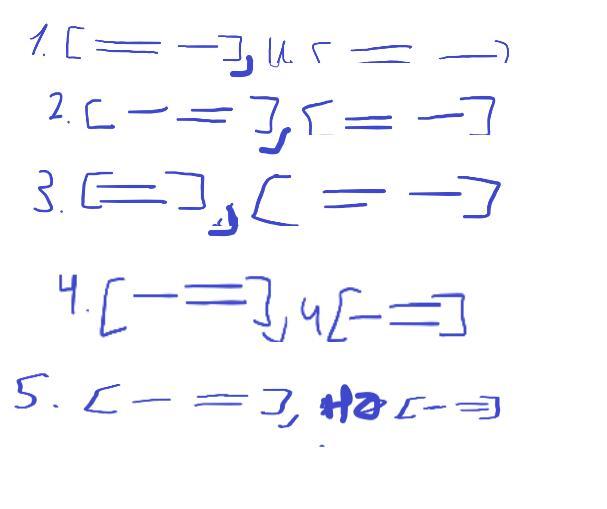 1. [ == — ], и [ == — ]
2. [ — == ], [ == — ]
3. [ == ], [ == — ]
4. [ — == ], и [ — == ]
5. [ — == ], но [ — == ]